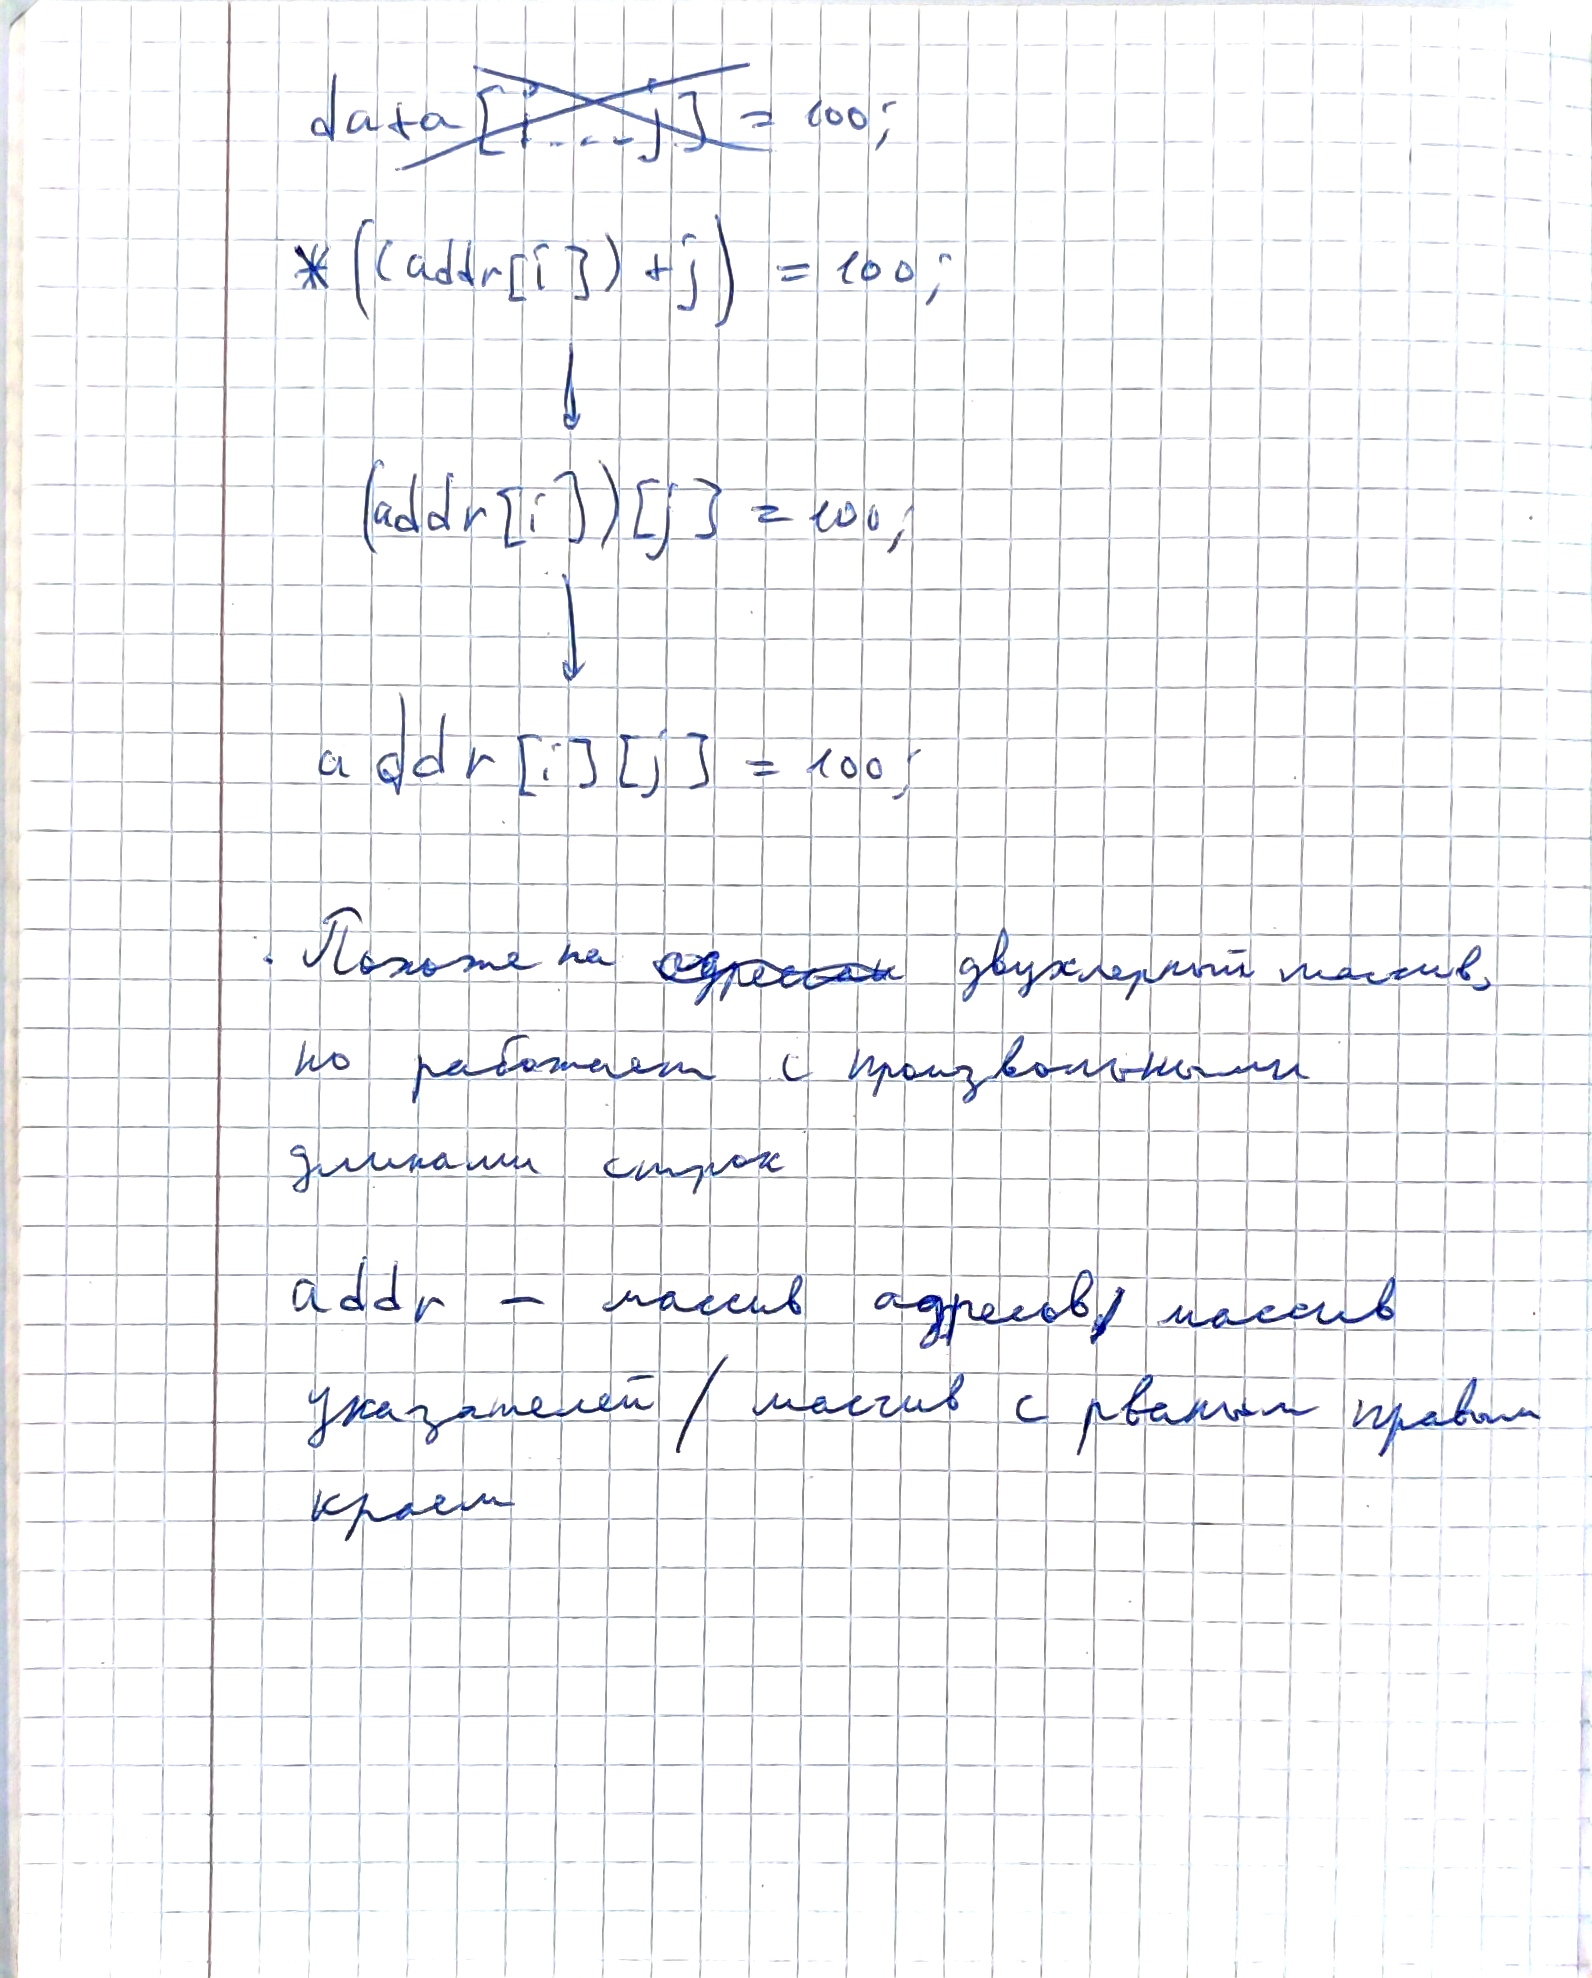 data[i...j] = 100;
*((addr[i])+j) = 100;
(addr[i])[j] = 100;
addr[i][j] = 100;
Похоже на адресан двухмерный массив,
но работает с произвольными
длинами строк
addr – массив адресов / массив
указателей / массив с рваным правым
краем